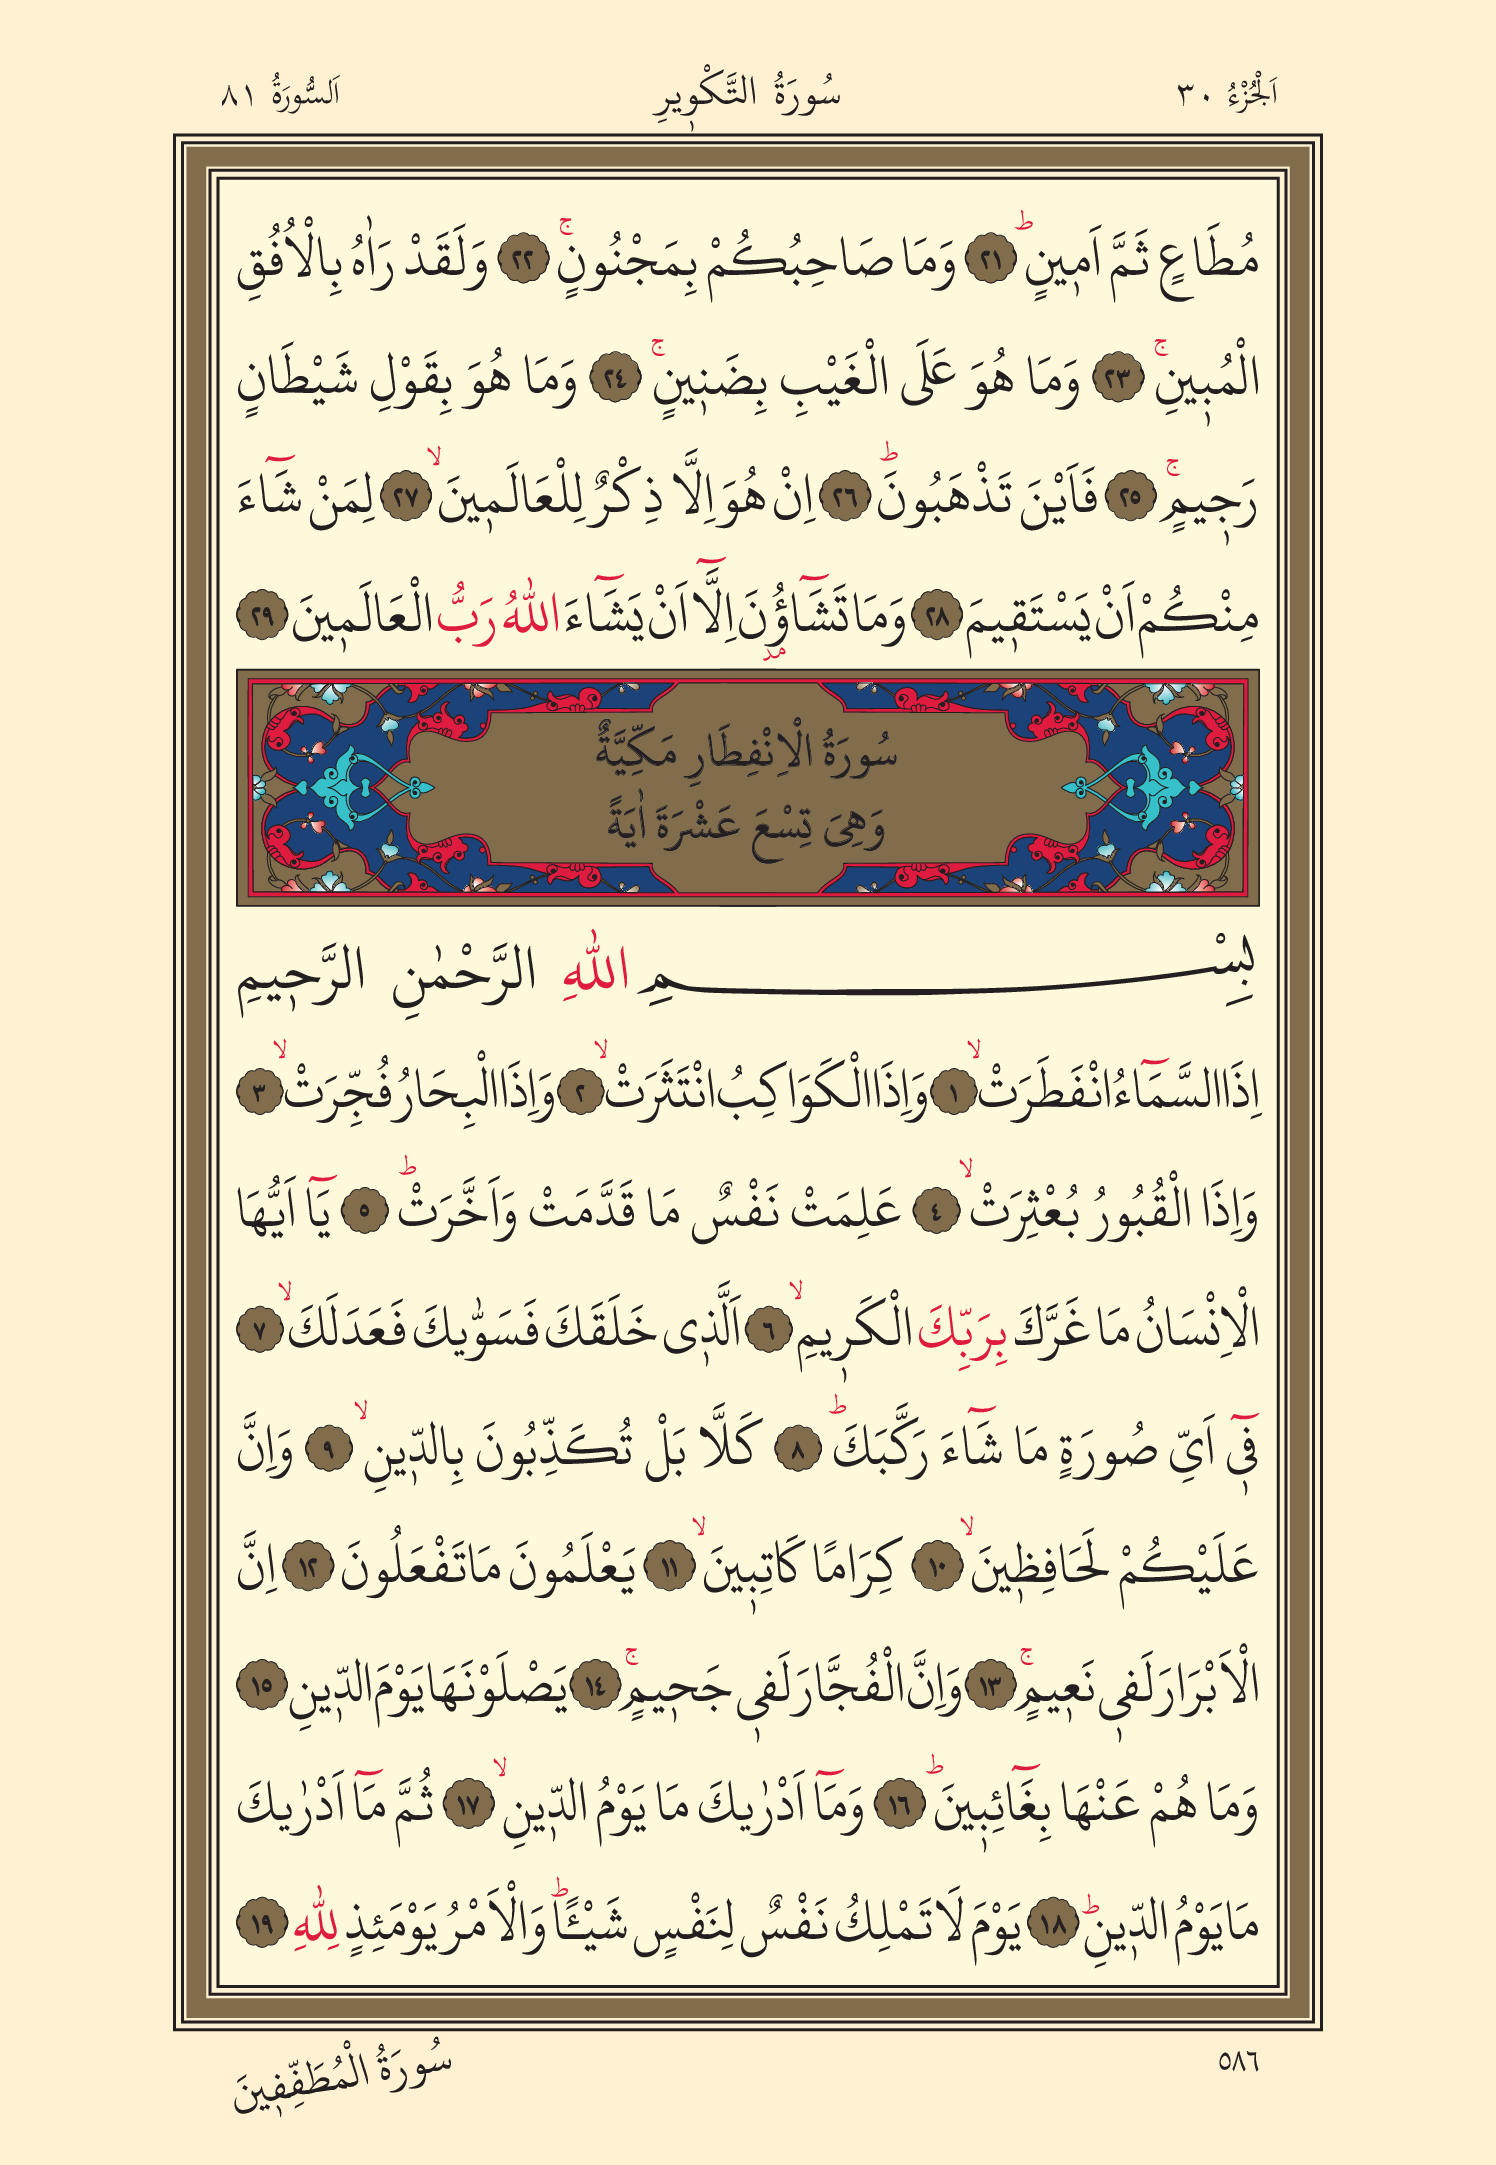 اَلْجُزْءُ ٣٠ سُورَةُ التَّكْوٖيرِ اَلسُّورَةُ ٨١
مُطَاعٍ ثَمَّ اَمٖينٍ ؕ ﴿٢١﴾ وَمَا صَاحِبُكُمْ بِمَجْنُونٍ ۚ ﴿٢٢﴾ وَلَقَدْ رَاٰهُ بِالْاُفُقِ
الْمُبٖينِ ۚ ﴿٢٣﴾ وَمَا هُوَ عَلَى الْغَيْبِ بِضَنٖينٍ ۚ ﴿٢٤﴾ وَمَا هُوَ بِقَوْلِ شَيْطَانٍ
رَجٖيمٍ ۚ ﴿٢٥﴾ فَاَيْنَ تَذْهَبُونَ ؕ ﴿٢٦﴾ اِنْ هُوَ اِلَّا ذِكْرٌ لِلْعَالَمٖينَ ۙ ﴿٢٧﴾ لِمَنْ شَٓاءَ
مِنْكُمْ اَنْ يَسْتَقٖيمَ ﴿٢٨﴾ وَمَا تَشَٓاؤُ۫نَ اِلَّٓا اَنْ يَشَٓاءَ اللّٰهُ رَبُّ الْعَالَمٖينَ ﴿٢٩﴾
مد
سُورَةُ الْاِنْفِطَارِ مَكِّيَّةٌ
وَهِىَ تِسْعَ عَشْرَةَ اٰيَةً
بِسْمِ اللّٰهِ الرَّحْمٰنِ الرَّحٖيمِ
اِذَا السَّمَٓاءُ انْفَطَرَتْ ۙ ﴿١﴾ وَاِذَا الْكَوَاكِبُ انْتَثَرَتْ ۙ ﴿٢﴾ وَاِذَا الْبِحَارُ فُجِّرَتْ ۙ ﴿٣﴾
وَاِذَا الْقُبُورُ بُعْثِرَتْ ۙ ﴿٤﴾ عَلِمَتْ نَفْسٌ مَا قَدَّمَتْ وَاَخَّرَتْ ؕ ﴿٥﴾ يَٓا اَيُّهَا
الْاِنْسَانُ مَا غَرَّكَ بِرَبِّكَ الْكَرٖيمِ ۙ ﴿٦﴾ اَلَّذٖى خَلَقَكَ فَسَوّٰيكَ فَعَدَلَكَ ۙ ﴿٧﴾
فٖٓى اَىِّ صُورَةٍ مَا شَٓاءَ رَكَّبَكَ ؕ ﴿٨﴾ كَلَّا بَلْ تُكَذِّبُونَ بِالدّٖينِ ۙ ﴿٩﴾ وَاِنَّ
عَلَيْكُمْ لَحَافِظٖينَ ۙ ﴿١٠﴾ كِرَامًا كَاتِبٖينَ ۙ ﴿١١﴾ يَعْلَمُونَ مَا تَفْعَلُونَ ﴿١٢﴾ اِنَّ
الْاَبْرَارَ لَفٖى نَعٖيمٍ ۚ ﴿١٣﴾ وَاِنَّ الْفُجَّارَ لَفٖى جَحٖيمٍ ۚ ﴿١٤﴾ يَصْلَوْنَهَا يَوْمَ الدّٖينِ ﴿١٥﴾
وَمَا هُمْ عَنْهَا بِغَٓائِبٖينَ ؕ ﴿١٦﴾ وَمَٓا اَدْرٰيكَ مَا يَوْمُ الدّٖينِ ۙ ﴿١٧﴾ ثُمَّ مَٓا اَدْرٰيكَ
مَا يَوْمُ الدّٖينِ ؕ ﴿١٨﴾ يَوْمَ لَا تَمْلِكُ نَفْسٌ لِنَفْسٍ شَيْـًٔا ؕ وَالْاَمْرُ يَوْمَئِذٍ لِلّٰهِ ﴿١٩﴾
٥٨٦
سُورَةُ الْمُطَفِّفٖينَ